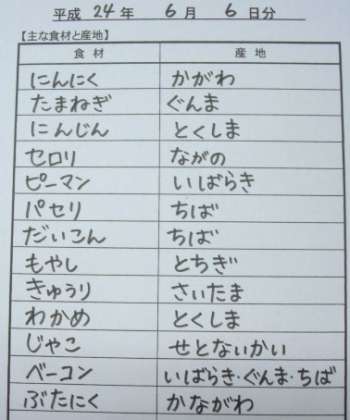 平成 24 年 6 月 6 日分
【主な食材と産地】
食材 産地
にんにく かがわ
たまねぎ ぐんま
にんじん とくしま
セロリ ながの
ピーマン いばらき
パセリ ちば
だいこん ちば
もやし とちぎ
きゅうり さいたま
わかめ とくしま
じゃこ せとないかい
ベーコン いばらき・ぐんま・ちば
ぶたにく かながわ